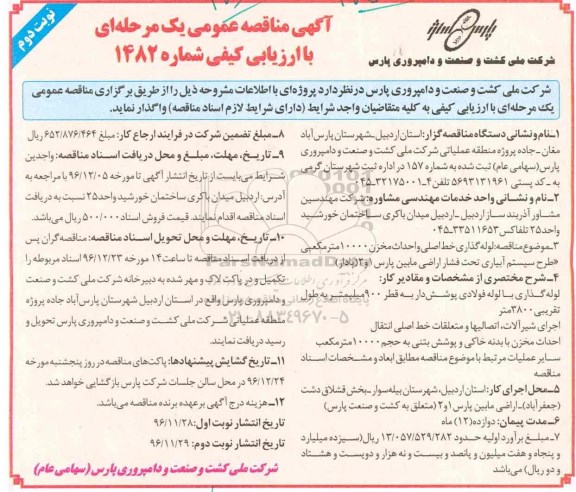 نوبت دوم
آگهی مناقصه عمومی یک مرحله‌ای
با ارزیابی کیفی شماره ۱۴۸۲
شرکت ملی کشت و صنعت و دامپروری پارس
شرکت ملی کشت و صنعت و دامپروری پارس درنظر دارد پروژه‌ای با اطلاعات مشروحه ذیل را از طریق برگزاری مناقصه عمومی
یک مرحله‌ای با ارزیابی کیفی به کلیه متقاضیان واجد شرایط (دارای شرایط لازم اسناد مناقصه) واگذار نماید.
۱ـ نام و نشانی دستگاه مناقصه گزار: استان اردبیل ـ شهرستان پارس آباد
مغان ـ جاده پروژه منطقه عملیاتی شرکت ملی کشت و صنعت و دامپروری
پارس (سهامی عام) ثبت شده به شماره ۱۵۷ در اداره ثبت شهرستان گرمی
به کد پستی ۵۶۹۳۱۳۱۹۶۱ تلفن ۴ـ۳۳۱۷۵۰۰۱ـ۰۴۵
۲ـ نام و نشانی واحد خدمات مهندسی مشاوره: شرکت مهندسین
مشاور آذریند ساز اردبیل ـ اردبیل میدان باکری ساختمان خورشید
واحد ۲۵ تلفاکس ۳۳۵۱۱۶۵۳ـ۰۴۵
۳ـ موضوع مناقصه: لوله گذاری خط اصلی و احداث مخزن ۱۰۰۰۰ مترمکعبی
«طرح سیستم آبیاری تحت فشار اراضی مابین پارس ۱ و ۲ (بادار)
۴ـ شرح مختصری از مشخصات و مقادیر کار:
لوله گذاری با لوله فولادی پوشش‌دار به قطر ۹۰۰ میلیمتر به طول
تقریبی ۳۸۰۰ متر
اجرای شیرآلات، اتصالیها و متعلقات خط اصلی انتقال
احداث مخزن با بدنه خاکی و پوشش بتنی به حجم ۱۰۰۰۰ مترمکعب
سایر عملیات مرتبط با موضوع مناقصه مطابق ابعاد و مشخصات اسناد
مناقصه
۵ـ محل اجرای کار: استان اردبیل، شهرستان بیله سوار ـ بخش قشلاق دشت
(جعفرآباد) ـ اراضی مابین پارس ۱ و ۲ (متعلق به کشت و صنعت پارس)
۶ـ مدت پیمان: دوازده (۱۲) ماه
۷ـ مبلغ برآورد اولیه حدود ۱۳/۰۵۷/۵۲۹/۲۸۲ ریال (سیزده میلیارد
و پنجاه و هفت میلیون و پانصد و بیست و نه هزار و دویست و هشتاد
و دو ریال) می‌باشد
۸ـ مبلغ تضمین شرکت در فرایند ارجاع کار: مبلغ ۶۵۲/۸۷۶/۴۶۴ ریال
۹ـ تاریخ، مهلت، مبلغ و محل دریافت اسناد مناقصه: واجدین
شرایط می‌بایست از تاریخ انتشار آگهی تا مورخه ۹۶/۱۲/۰۵ با مراجعه به
آدرس: اردبیل میدان باکری ساختمان خورشید واحد ۲۵ نسبت به دریافت
اسناد مناقصه اقدام نمایند. قیمت فروش اسناد ۵۰۰/۰۰۰ ریال می‌باشد.
۱۰ـ تاریخ، مهلت و محل تحویل اسناد مناقصه: مناقصه گران پس
از دریافت اسناد مناقصه تا ساعت ۱۴ مورخه ۹۶/۱۲/۲۳ اسناد مربوطه را
تکمیل و در پاکت لاک و مهر شده به دبیرخانه شرکت ملی کشت و صنعت
و دامپروری پارس واقع در استان اردبیل شهرستان پارس آباد جاده پروژه
منطقه عملیاتی شرکت ملی کشت و صنعت و دامپروری پارس تحویل و
رسید دریافت نمایند.
۱۱ـ تاریخ گشایش پیشنهادها: پاکت‌های مناقصه در روز پنجشنبه مورخه
۹۶/۱۲/۲۴ در محل سالن جلسات شرکت پارس بازگشایی خواهد شد.
۱۲ـ هزینه درج آگهی بر عهده برنده مناقصه می‌باشد.
تاریخ انتشار نوبت اول: ۹۶/۱۱/۲۸
تاریخ انتشار نوبت دوم: ۹۶/۱۱/۲۹
شرکت ملی کشت و صنعت و دامپروری پارس (سهامی عام)
ParsNamadData
۰۲۱-۸۸۳۴۹۶۷۰-۵